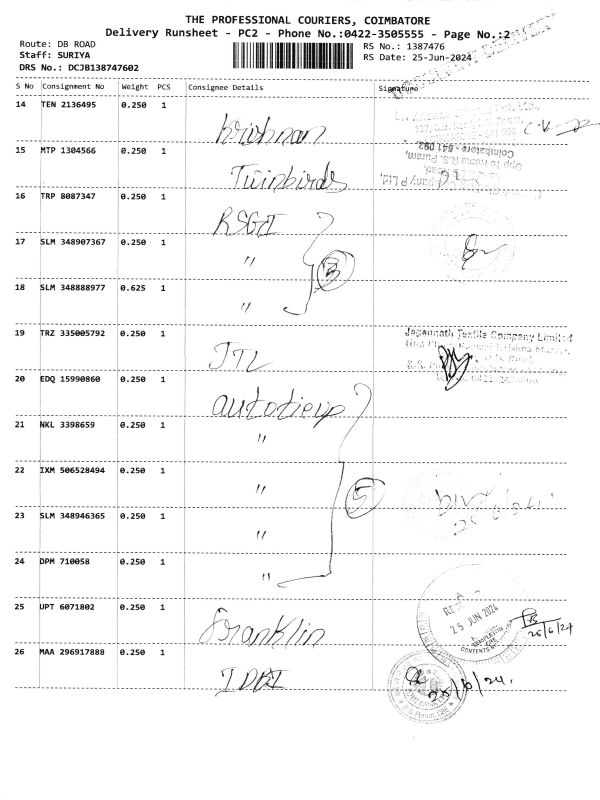 THE PROFESSIONAL COURIERS, COIMBATORE
Delivery Runsheet - PC2 - Phone No.:0422-3505555 - Page No.:2
Route: DB ROAD
RS No.: 1387476
Staff: SURIYA
RS Date: 25-Jun-2024
DRS No.: DCJB138747602
S No Consignment No Weight PCS Consignee Details Signature
14 TEN 2136495 0.250 1
Krishnan
15 MTP 1304566 0.250 1
Twinbirds
16 TRP 8087347 0.250 1
RSGI
17 SLM 348907367 0.250 1
"
3
18 SLM 348888977 0.625 1
"
19 TRZ 335005792 0.250 1
Jagannath Textile Company Limited
JTL
20 EDQ 15990860 0.250 1
autotieup
21 NKL 3398659 0.250 1
"
22 IXM 506528494 0.250 1
"
5
23 SLM 348946365 0.250 1
"
24 DPM 710058 0.250 1
"
25 UPT 6071802 0.250 1
25 JUN 2024
Franklin
25/6/24
26 MAA 296917888 0.250 1
IDBI
25/6/24.